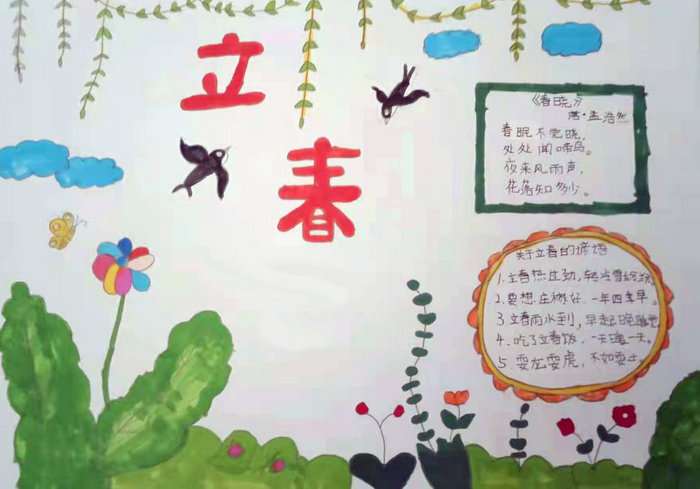 立
春
《春晓》
唐·孟浩然
春眠不觉晓,
处处闻啼鸟。
夜来风雨声,
花落知多少。
关于立春的谚语
1. 立春热过劲,转冷雪纷纷。
2. 要想庄稼好,一年四季早。
3 立春雨水到,早起晚睡觉
4. 吃了立春饭,一天暖一天。
5. 耍龙耍虎,不如耍土。